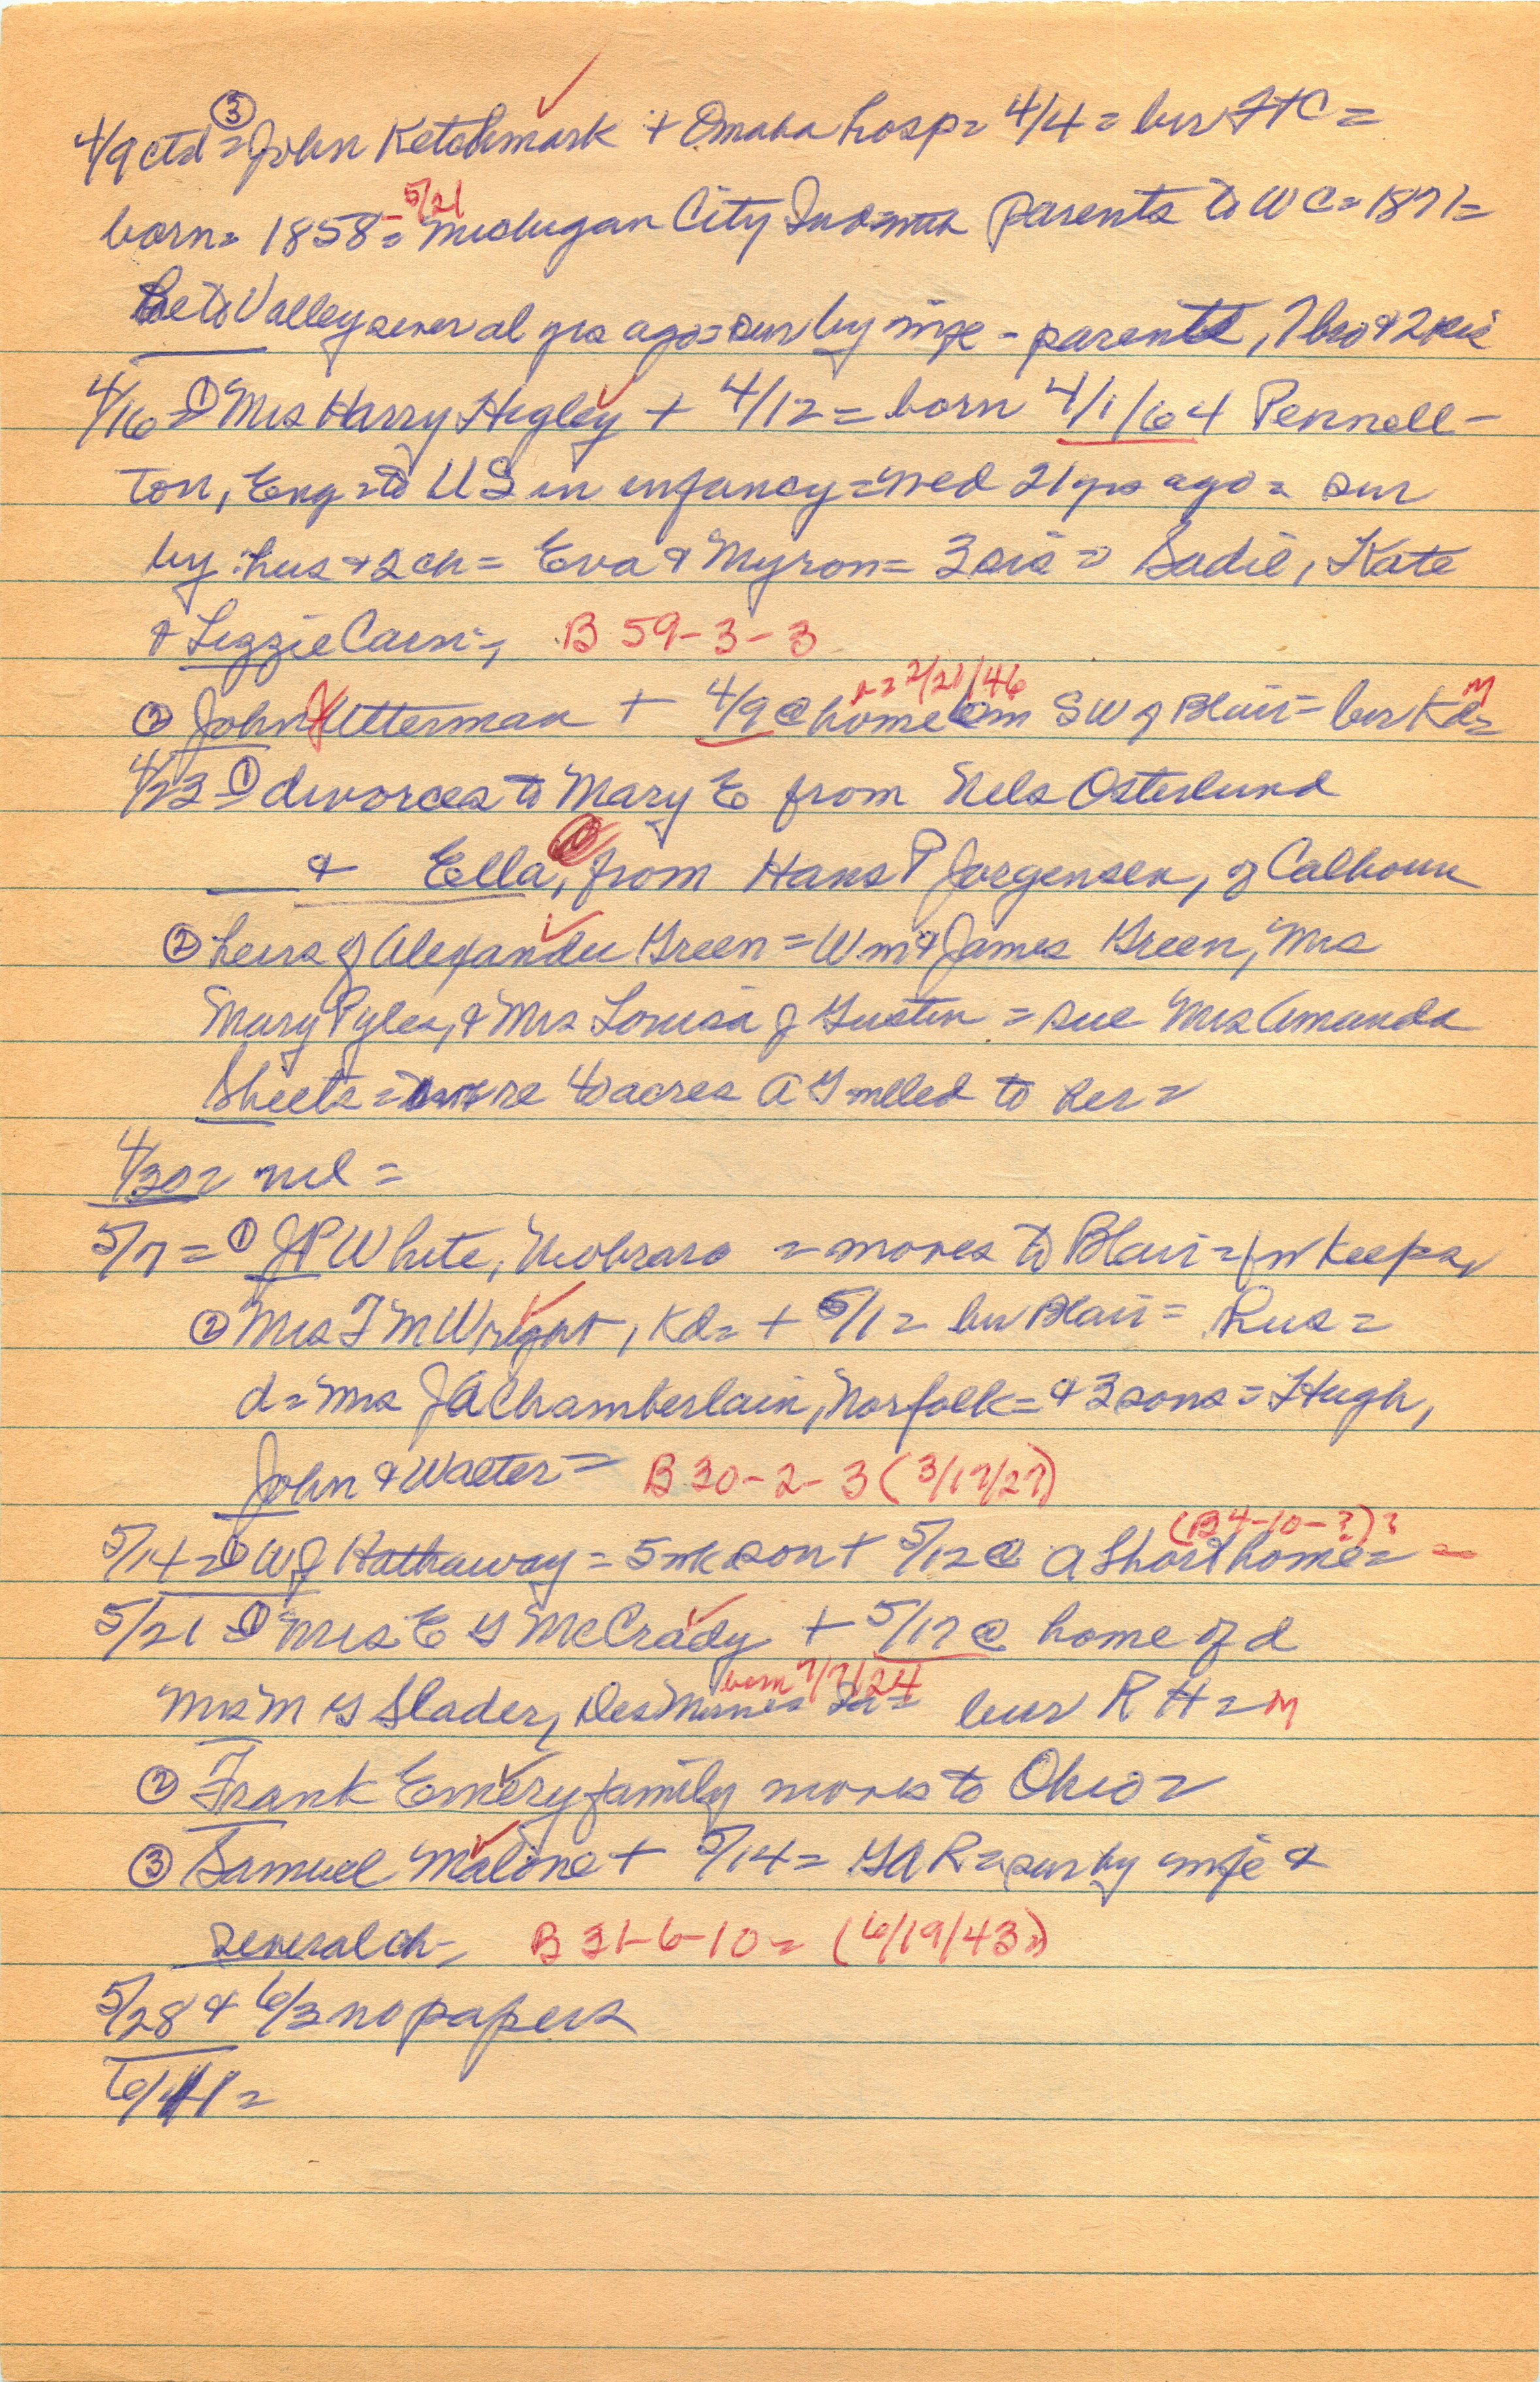 4/9 ctd = ③ John Ketchmark + Omaha hosp = 4/4 = bur Ft C =
born = 1858 - 5/21 = Michigan City Ind = with parents to W C = 1871 =
he to Valley several yrs ago = sur by wife - parents, 7 bro & 2 sis
4/16 = ① Mrs Harry Hegley + 4/12 = born 4/1/64 Pennell-
ton, Eng = to US in infancy = wed 21 yrs ago = sur
by hus & 2 ch = Eva & Myron = 3 sis = Sadie, Kate
& Lizzie Carn =, B 59-3-3
② John J Utterman + 4/9 @ home b = 2/21/46 SW of Blair = bur Kd = M
4/23 = ① divorces to Mary E from Nels Osterlund
& Ella, from Hans P Joegensen, of Calhoun
② heirs of Alexander Green = Wm & James Green, Mrs
Mary Pyles, & Mrs Louisa J Gustin = sue Mrs Amanda
Sheets = re 40 acres A G willed to her =
4/30 = nil =
5/7 = ① J P White, Niobrara = moves to Blair = for keeps,
② Mrs F M Wright, Kd = + 5/1 = bur Blair = hus =
d = Mrs J A Chamberlain, Norfolk = & 3 sons = Hugh,
John & Walter = B 30-2-3 (3/17/27)
5/14 = ① W J Hathaway = 5 wk son + 5/12 @ A Short home = (B 4-10-?)? -
5/21 = ① Mrs E G McCrady + 5/17 @ home of d
Mrs M G Slader, Des Moines Ia = born 7/7/24 bur R H = M
② Frank Emery family moves to Ohio =
③ Samuel Malone + 5/14 = GAR = sur by wife &
several ch =, B 31-6-10 = (6/19/43)
5/28 & 6/3 no papers
6/11 =